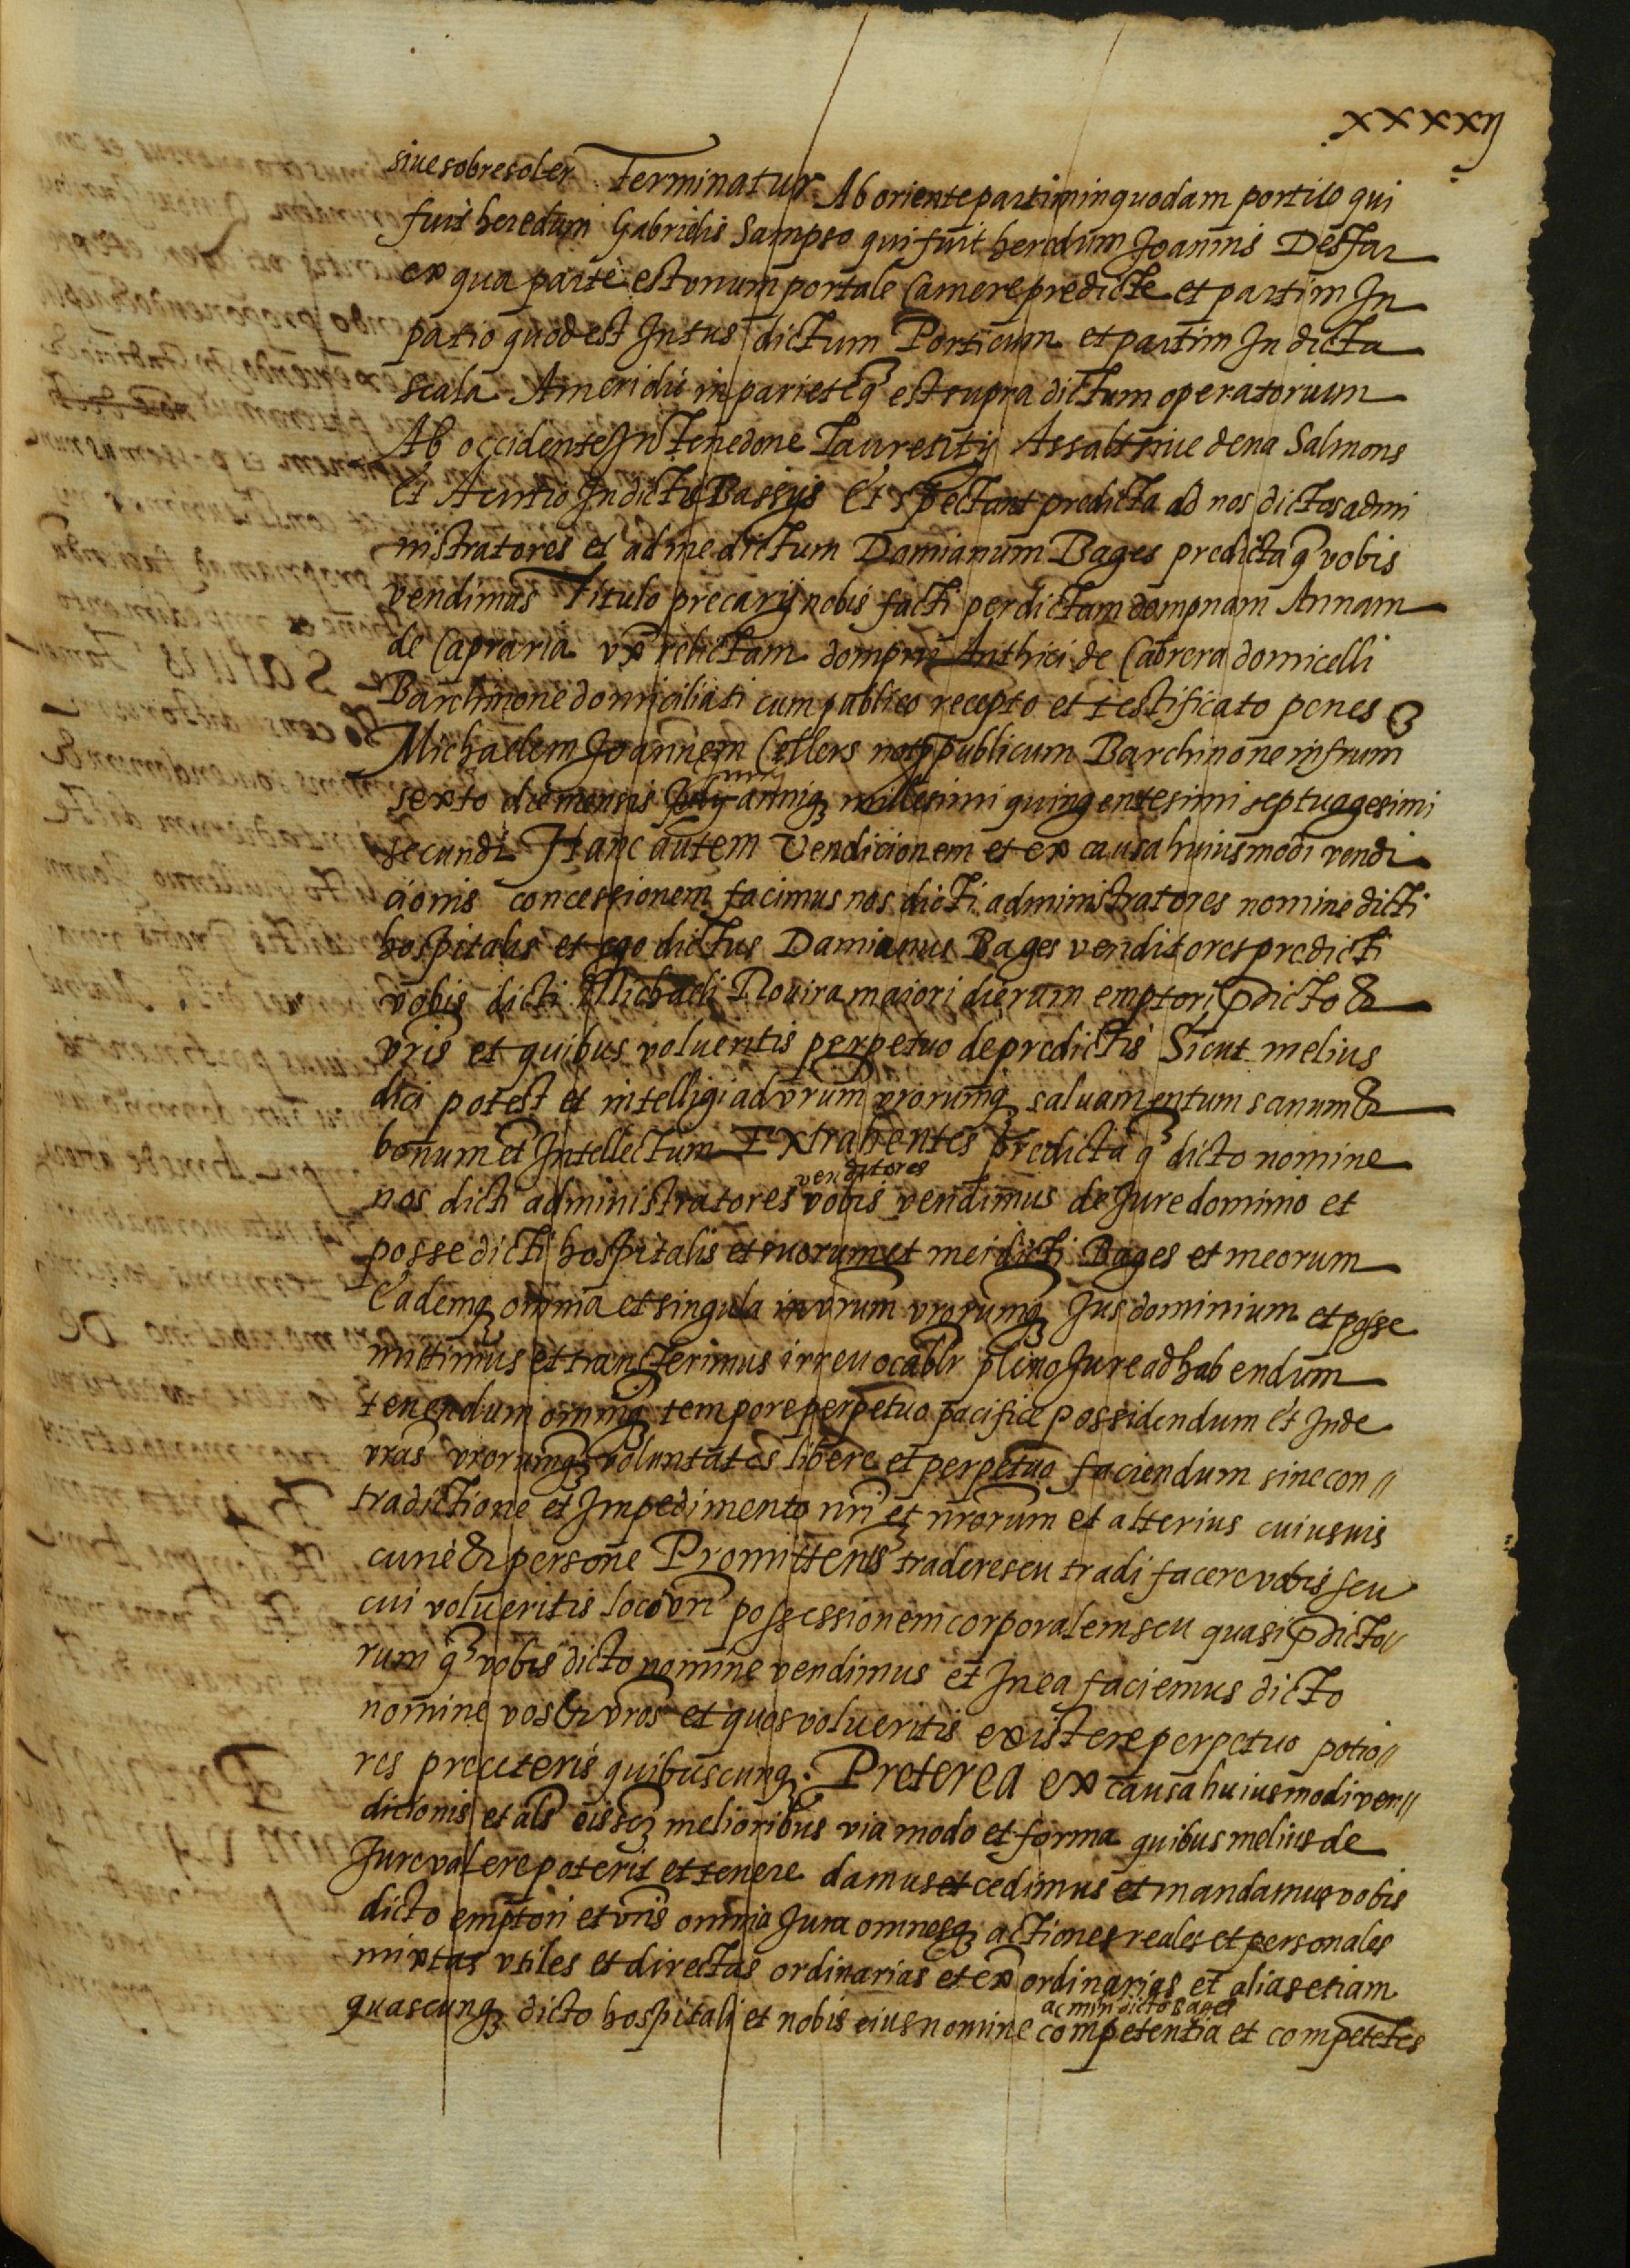 xxxxxij
siue sobresoler Terminatur Ab oriente partim in quodam portico qui
fuit heredum Gabrielis Sampso qui fuit heredum Joannis Desfar
ex qua parte est vnum portale Camere predicte et partim In
patio quod est Intus dictum Porticum et partim In dicta
scala A meridie in pariete q̄ est supra dictum operatorium
Ab occidente In tenedone Laurentij Assalt siue dena Salmons
Et A circio In dictis Bassijs Et spectant predicta ad nos dictos admi
nistratores et ad me dictum Damianum Bages predicta q̄ vobis
vendimus Titulo precarij nobis facti per dictam dompnam Annam
de Capraria vx̄ relictam dompni Anthici de Cabrera domicelli
Barchinone domiciliati cum publico recepto et testificato penes
Michaelem Joannem Cellers notm̄ publicum Barchinone instrum
sexto die mensis July annijq millesimi quingentesimi septuagesimi
secundi Hanc autem Vendicionem et ex causa huiusmodi vendi
cionis concessionem facimus nos dicti administratores nomine dicti
hospitalis et ego dictus Damianus Bages venditores predicti
vobis dicti Michaeli Rouira maiori dierum emptori p̄dicto &
vris et quibus volueritis perpetuo de predictis Sicut melius
dici potest et intelligi ad vrum vrorumq saluamentum sanum &
bonum et Intellectum Extrahentes predicta q̄ dicto nomine
nos dicti administratores venditores vobis vendimus de Jure dominio et
posse dicti hospitalis et suorum et mei dicti Bages et meorum
Eademq omnia et singula in vrum vrorumq Jus dominium et posse
mittimus et transferimus irreuocablr pleno Jure ad habendum
tenendum omniq tempore perpetuo pacifice possidendum et Inde
vras vrorumq voluntates libere et perpetuo faciendum sine con//
tradictione et Impedimento nri et nrorum et alterius cuiusuis
cunc & persone Promittens tradere seu tradi facere vobis seu
cui volueritis loco vri possessionem corporalem seu quasi p̄dicto//
rum q̄ vobis dicto nomine vendimus et In ea faciemus dicto
nomine vos & vros et quos volueritis existere perpetuo potio//
res pre ceteris quibuscunq. Preterea ex causa huiusmodi ven//
dicionis et als eisq melioribus via modo et forma quibus melius de
Jure valere poterit et tenere damus et cedimus et mandamus vobis
dicto emptori et vris omnia Jura omnesq actiones reales et personales
mixtas vtiles et directas ordinarias et ex ordinarias et alias etiam
quascunq dicto hospitali et nobis eius nomine ac mihi dicto Bages competentia et competetes